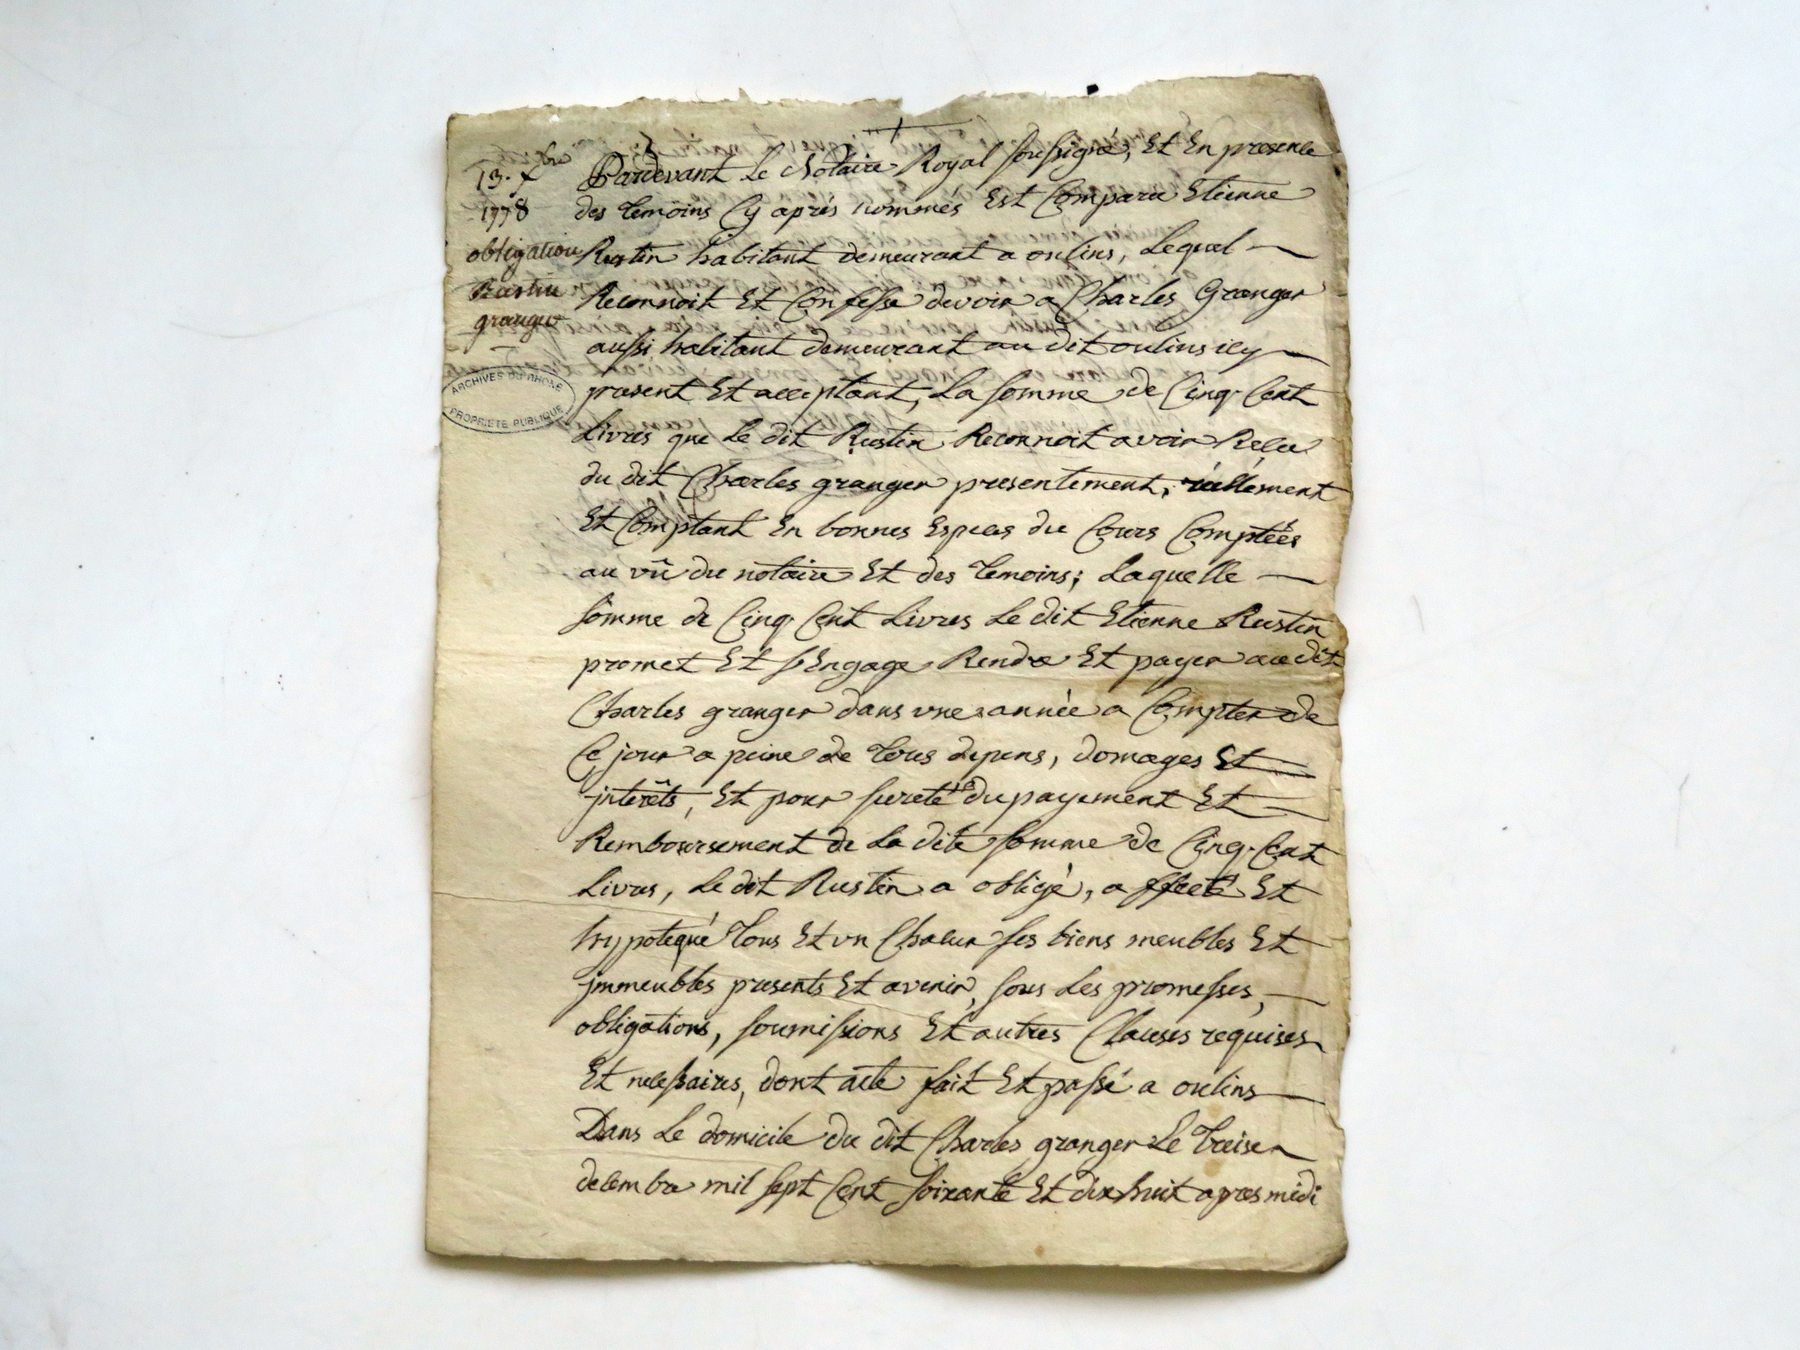 13. Xbre
1778
obligation
Rustin
granger
ARCHIVES DU RHONE
PROPRIETE PUBLIQUE
Pardevant Le Notaire Royal soussigné, Et En presence
des temoins Cy après nommés Est Comparu Etienne
Rustin habitant demeurant a oulins, Lequel
Reconnoit Et Confesse devoir a Charles Granger
aussi habitant demeurant au dit oulins icy
present Et acceptant, La somme de Cinq Cent
Livres que Le dit Rustin Reconnoit avoir Reçu
du dit Charles granger presentement, réellement
Et Comptant En bonnes Especes du Cours Comptées
au vû du notaire Et des temoins; Laquelle
somme de Cinq Cent Livres Le dit Etienne Rustin
promet Et s'Engage Rendre Et payer audit
Charles granger dans une année a Compter de
Ce jour a peine de tous depens, domages Et
interêts, Et pour sureté du payement Et
Remboursement de La dite somme de Cinq Cent
Livres, Le dit Rustin a obligé, affecté Et
hypotequé tous Et un Chacun ses biens meubles Et
immeubles presents Et avenir, sous Les promesses,
obligations, soumissions Et autres Clauses requises
Et necessaires, dont acte fait Et passé a oulins
Dans Le domicile du dit Charles granger Le treise
decembre mil sept Cent soixante Et dix huit apres midi